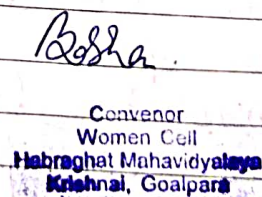 Convenor
Women Cell
Habraghat Mahavidyalaya
Krishnai, Goalpara